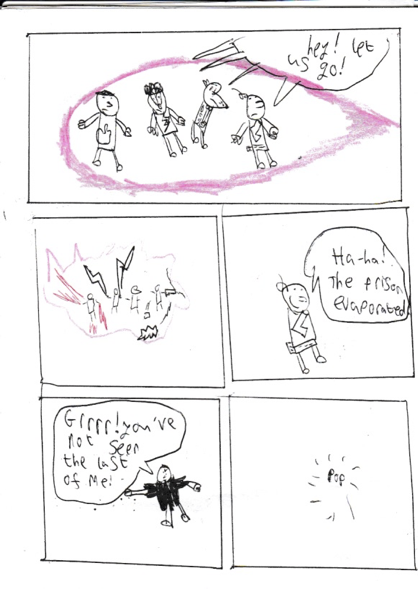 hey! let
us go!
Ha-ha!
The prison
evaporated!
Grrrr! you've
not seen
the last
of me!
Pop